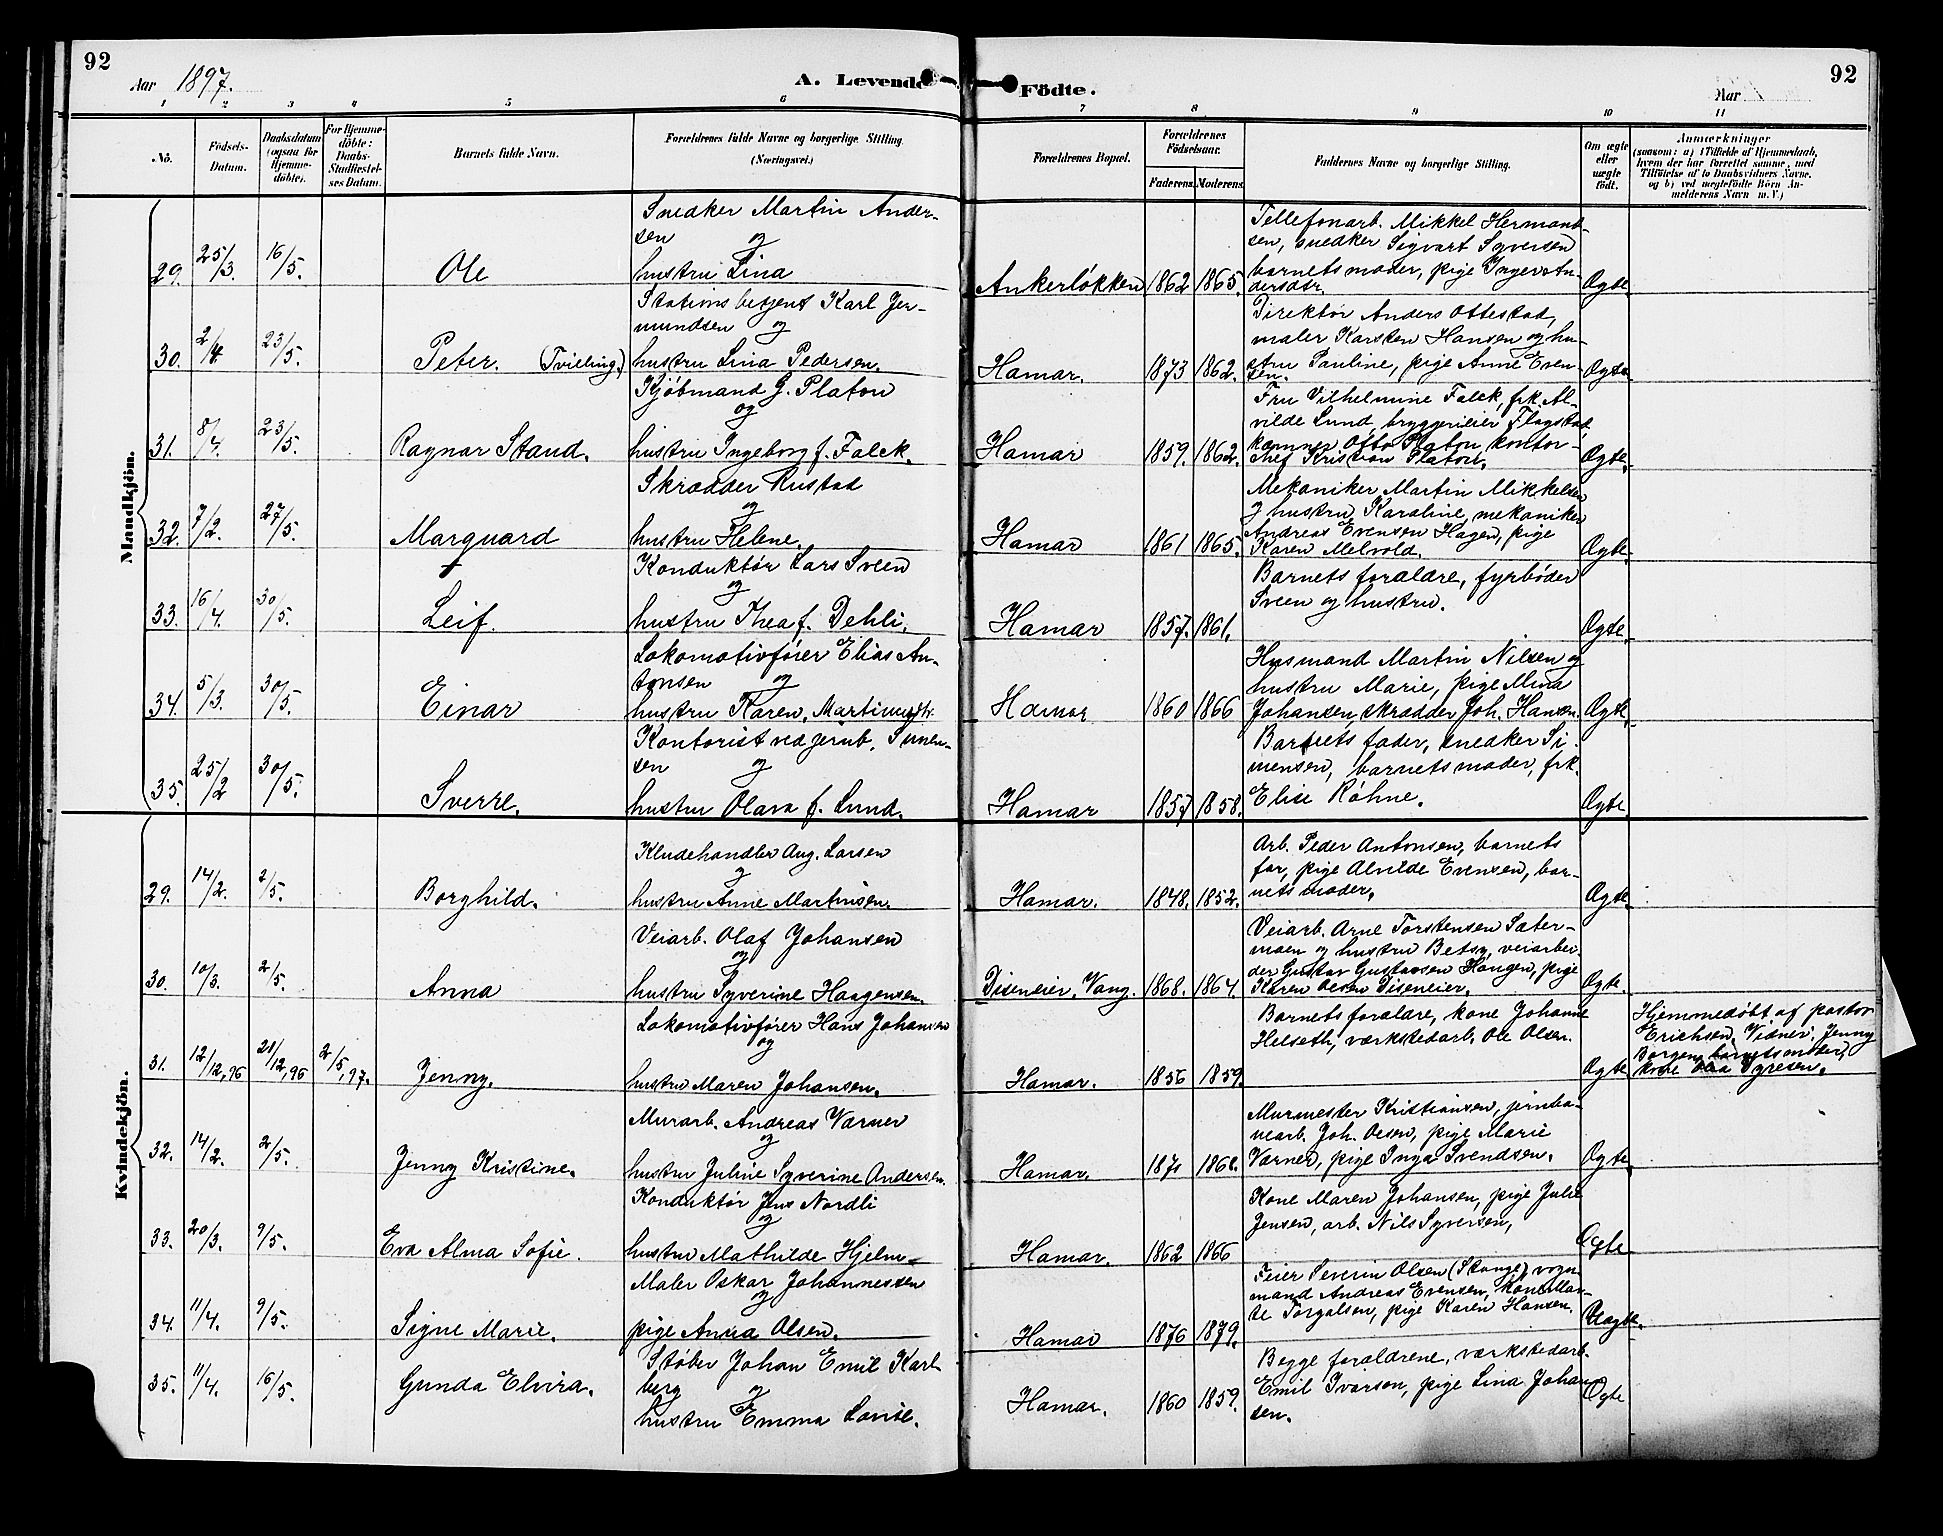 92
Aar 1897.
A. Levende
Födte.
Aar
92
1 2 3 4 5 6 7 8 9 10 11
No.
Födsels-Datum.
Daabsdatum (ogsaa for Hjemme-döbte).
For Hjemme-döbte: Daabs-Stadfæstel-ses Datum.
Barnets fulde Navn.
Forældrenes fulde Navne og borgerlige Stilling. (Næringsvei.)
Forældrenes Bopæl.
Forældrenes Födselsaar.
Faderens. Moderens.
Faddernes Navne og borgerlige Stilling.
Om ægte eller uægte födt.
Anmærkninger (saasom: a) i Tilfælde af Hjemmedaab, hvem der har forrettet samme, med Tilföielse af to Daabsvidners Navne. og b) ved uægtefödte Börn An-melderens Navn m. V.)
Mandkjön.
29. 25/3. 16/5. Ole
Snedker Martin Ander-
sen og
hustru Lina
Ankerløkken 1862 1865.
Tellefonarb. Mikkel Hermand-
sen, snedker Sigvart Syversen
barnets moder, pige Inger An-
dersdtr.
Ægte.
30. 2/4. 23/5. Peter. (Tvilling.)
Stationsbetjent Karl Jer-
mundsen og
hustru Lina Pedersen.
Hamar. 1873 1862.
Direktør Anders Ottestad,
maler Karsten Hansen og hu-
stru Pauline, pige Anne Even-
sen.
Ægte.
31. 8/4. 23/5. Ragnar Stand.
Kjøbmand G. Platou
og
hustru Ingeborg f. Falck.
Hamar 1859. 1862.
Fru Vilhelmine Falck, frk. Al-
vilde Lund, bryggerieier Flagstad
kæmner Otto Platou kontor-
chef Kristian Platou.
Ægte.
32. 7/2. 27/5. Marquard
Skrædder Rustad
og
hustru Helene.
Hamar 1861 1865.
Mekaniker Martin Mikkelsen
og hustru Karoline, mekaniker
Andreas Evensen Hagen, pige
Karen Melvold.
Ægte.
33. 16/4. 30/5. Leif.
Konduktør Lars Sveen
og
hustru Thea f. Dehli.
Hamar 1857. 1861.
Barnets forældre, fyrbøder
Sveen og hustru.
Ægte.
34. 5/3. 30/5. Einar
Lokomotivfører Elias An-
tonsen og
hustru Karen, Martinusdtr.
Hamar 1860 1866
Husmand Martin Nilsen og
hustru Marie, pige Mina
Johansen, skrædder Joh. Hansen.
Ægte.
35. 25/2 30/5. Sverre.
Kontorist ved jernb. Simen-
sen og
hustru Olava f. Lund.
Hamar 1857 1858.
Barnets fader, snedker Si-
mensen, barnets moder, frk.
Elise Røhne.
Ægte.
Kvindekjön.
29. 14/2. 2/5. Borghild.
Kludehandler Aug. Larsen
og
hustru Anne Martinsen.
Hamar. 1848. 1852.
Arb. Peder Antonsen, barnets
far, pige Alvilde Evensen, bar-
nets moder.
Ægte.
30. 10/3. 2/5. Anna
Veiarb. Olaf Johansen
og
hustru Syverine Haagensen.
Diseneier, Vang. 1868. 1864.
Veiarb. Arne Torstensen Sæter-
moen og hustru Betsy, veiarbei-
der Gustav Gustavsen Haugen, pige
Karen Olsen Diseneier.
Ægte.
31. 12/12, 96 28/12, 96 2/5, 97. Jenny.
Lokomotivfører Hans Johansen
og
hustru Maren Johansen.
Hamar. 1856 1859.
Barnets forældre, kone Johanne
Helseth, værkstedarb. Ole Olsen.
Ægte
Hjemmedøbt af pastor
Erichsen. Vidner: Jenny
Borgen, barnets moder,
kone
32. 14/2. 2/5. Jenny Kristine.
Murarb. Andreas Værner
og
hustru Juline Syverine Andersen.
Hamar. 1871 1868.
Murmester Kristiansen, jernba-
nearb. Joh. Olsen, pige Marie
Værner, pige Inga Svendsen.
Ægte.
33. 20/3. 9/5. Eva Alma Sofie.
Konduktør Jens Nordli
og
hustru Mathilde Hjelm.
Hamar. 1862 1866
Kone Maren Johansen, pige Julie
Jensen, arb. Nils Syversen,
Ægte
34. 11/4. 9/5. Signe Marie.
Maler Oskar Johannessen
og
pige Anna Olsen.
Hamar 1876 1879.
Feier Severin Olsen (Stange), vogn-
mand Andreas Evensen, kone Mar-
te Torgalsen, pige Karen Hansen.
Uægte.
35. 11/4. 16/5. Gunda Elvira.
Støber Johan Emil Karl-
berg og
hustru Emma Lovise.
Hamar. 1860 1859.
Begge forældrene, værkstedarb.
Emil Ivarson, pige Lina Johan-
sen.
Ægte